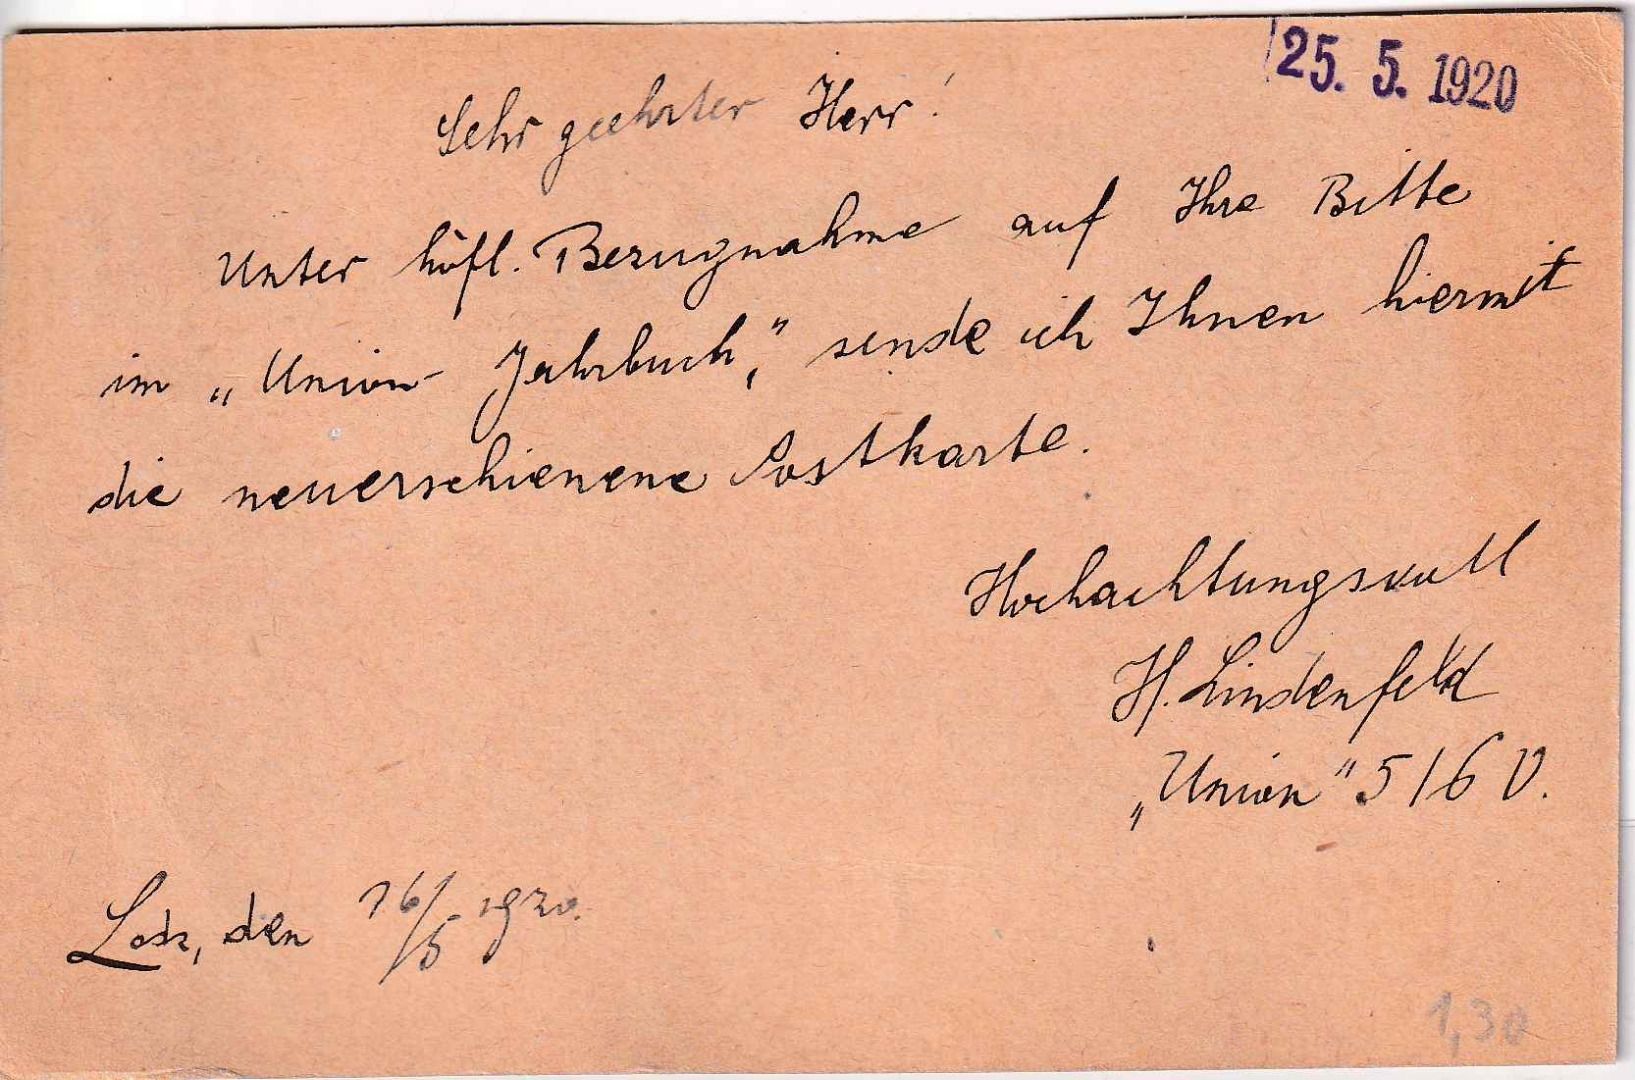 25. 5. 1920
Sehr geehrter Herr!
Unter höfl. Bezugnahme auf Ihre Bitte
im „Union- Jahrbuch“, sende ich Ihnen hiermit
die neuerschienene Postkarte.
Hochachtungsvoll
H. Lindenfeld
„Union“ 516 V.
Lodz, den 16/5 1920.
1,30